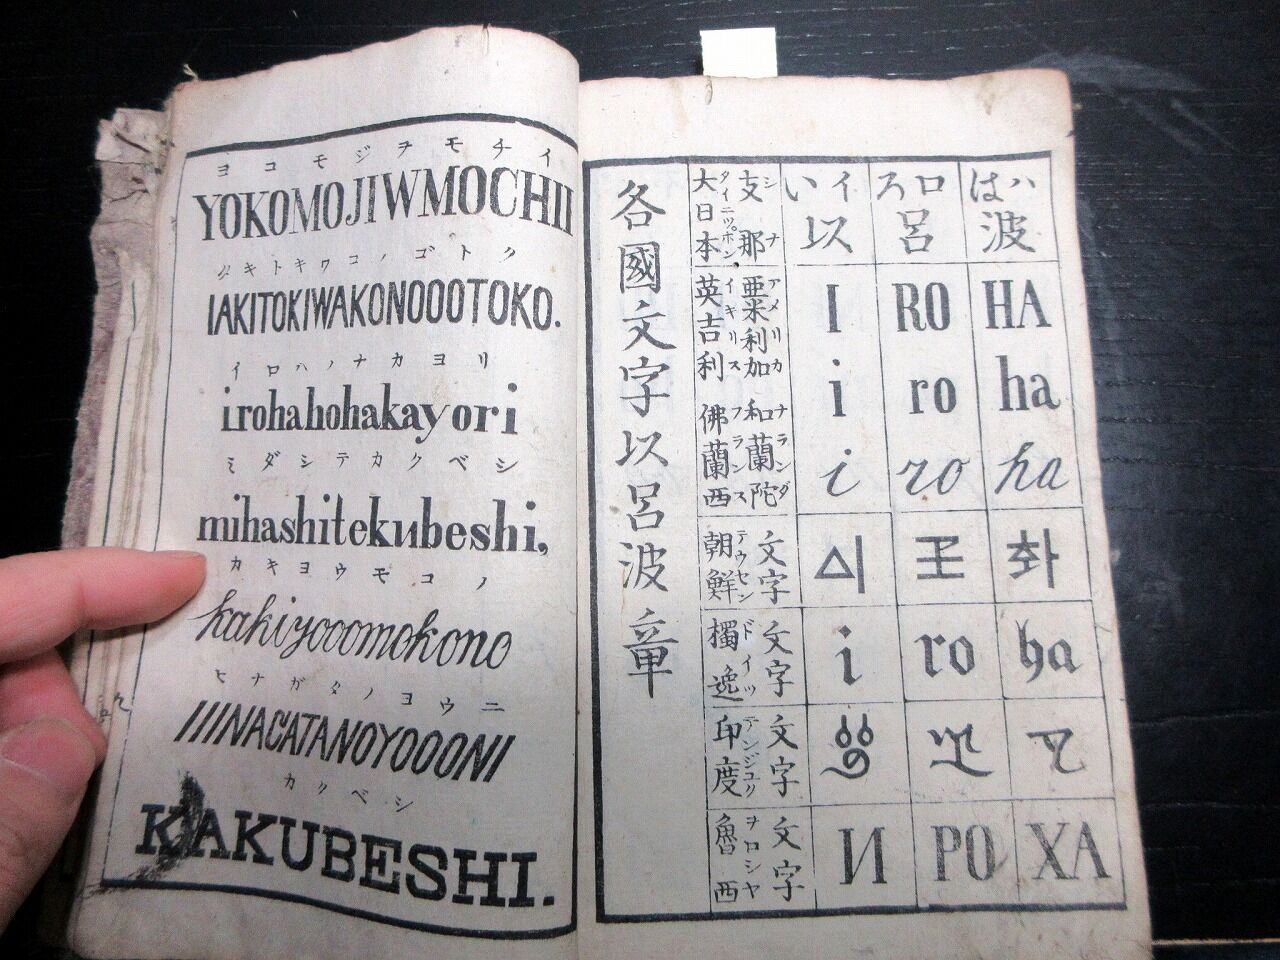 各國文字以呂波章
支那 シナ
大日本 タイニッポン
亜米利加 アメリカ
英吉利 イキリス
和蘭陀 ヲランダ
佛蘭西 フランス
朝鮮 テウセン 文字
獨逸 ドイツ 文字
印度 テンジユク 文字
魯西 ヲロシヤ 文字
い イ ろ ロ は ハ
以 呂 波
I RO HA
i ro ha
i ro ha
i ro ha
И РО ХА
ヨコモジヲモチイ
YOKOMOJIWMOCHII
クトゴノコワキトキ
IAKITOKIWAKONOOOTOKO.
イロハノナカヨリ
irohahohakayori
ミダシテカクベシ
mihashitekubeshi,
カキヨウモコノ
kakiyooomokono
ヒナガタノヨウニ
IIINAGATANOYOOONI
カクベシ
KAKUBESHI.